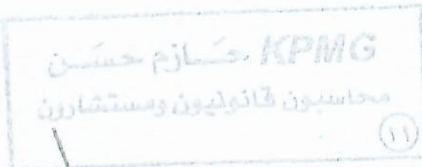 KPMG حــازم حســن
محاسبون قانونيون ومستشارون
(١١)